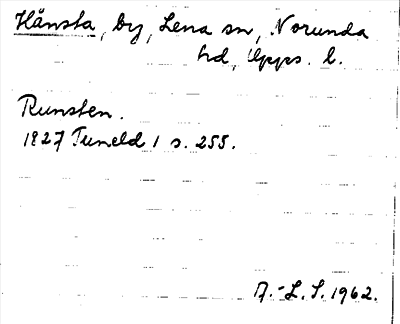 Hånsta, by, Lena sn, Norunda
hd, Upps. l.
Runsten.
1827 Tuneld 1 s. 255.
A.-L. S. 1962.